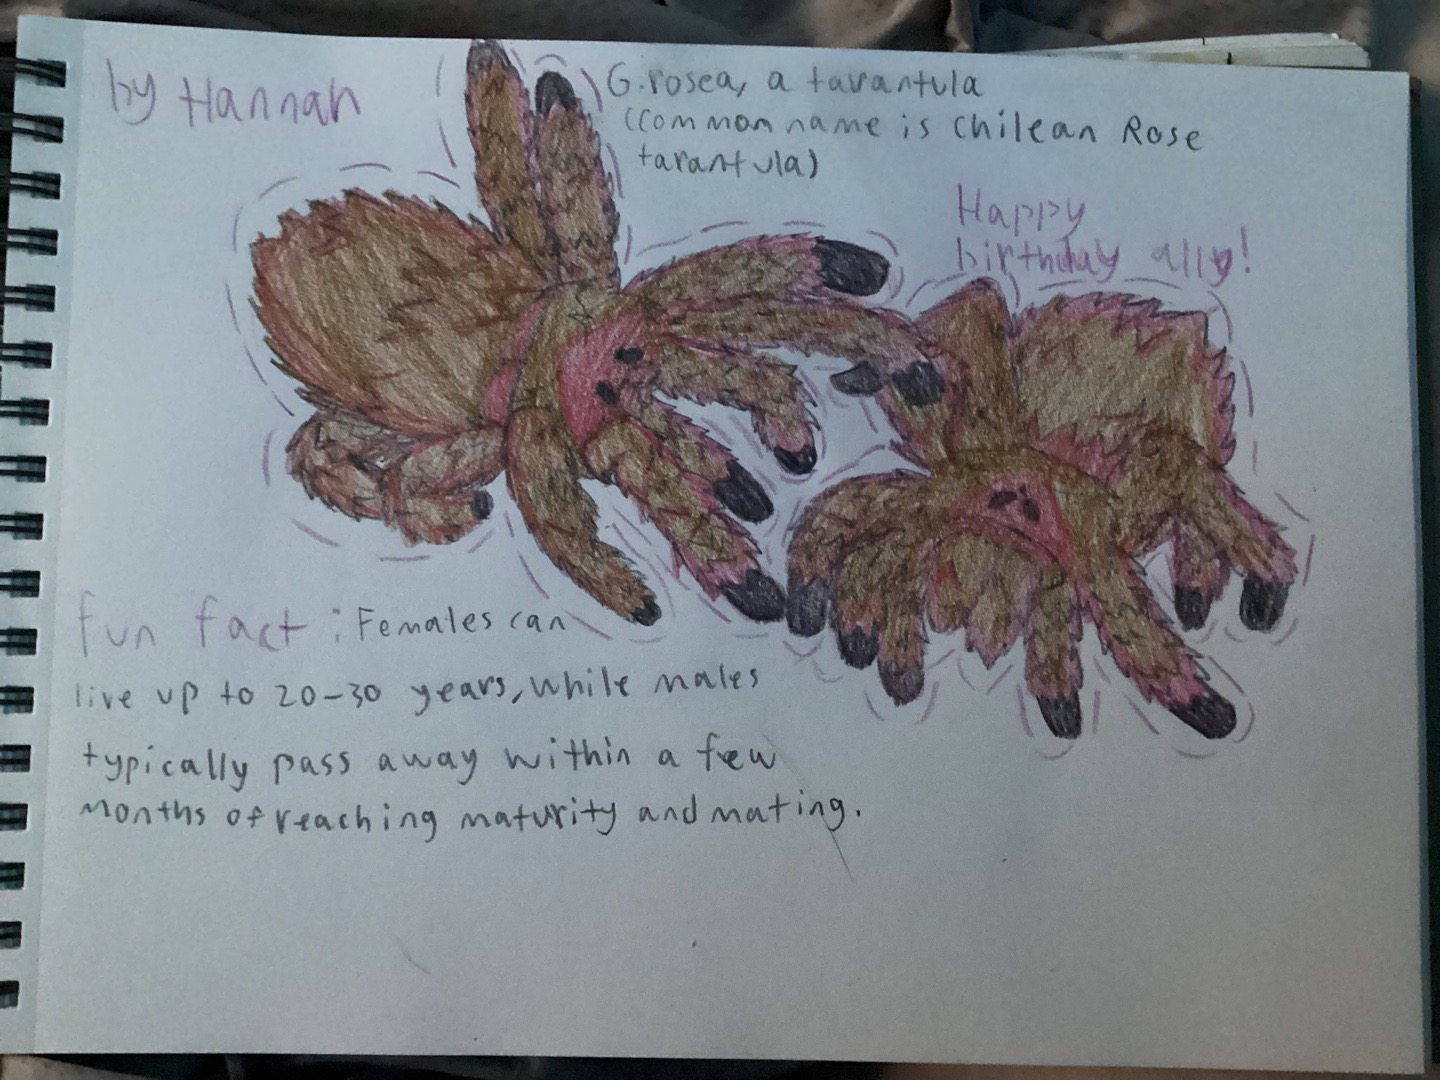 by Hannah
G.rosea, a tarantula
(common name is Chilean Rose
tarantula)
Happy
birthday ally!
fun fact: Females can
live up to 20-30 years, while males
typically pass away within a few
months of reaching maturity and mating.